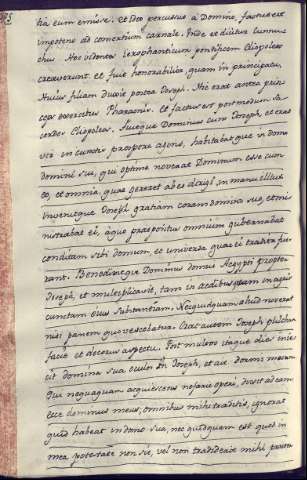 tia eum emisse. et ideo percussus a Domino, factus est
impotens ad comertium carnale. Unde et dictus Eunu-
chus. Hoc videntes Hierophantium pontificem Eliopoleos
creaverunt. et fuit honorabilior, quam in principatu,
Huius filiam duxit postea Joseph. Hic erat antea prin-
ceps exercitus Pharaonis. Et factus est postmodum sa-
cerdos Eliopoleos. Fuitque Dominus cum Joseph, et erat
vir in cunctis prospere agens, habitabat que in domo
domini sui, qui optime noverat Dominum esse cum
eo, et omnia quae gereret ab eo dirigi, in manu illius.
Invenitque Joseph gratiam coram domino suo, et mi-
nistrabat ei, a quo praepositus omnium gubernabat
conditam sibi domum, et universa quae ei tradita fue-
rant. Benedixitque Dominus domui Aegyptii propter
Joseph, et multiplicavit, tam in aedibus quam in agris
cunctam eius substantiam. Nec quidquam aliud noverat
nisi panem quo vescebatur. Erat autem Joseph pulchra
facie et decorus aspectu. Post multos itaque dies inie-
cit domina sua oculos in Joseph, et ait dormi mecum
Qui nequaquam acquiescens nefario operi, dixit ad eam
ecce dominus meus, omnibus mihi traditis, ignorat
quid habeat in domo sua, nec quidquam est quod in
mea potestate non sit, vel non tradiderit mihi praeter